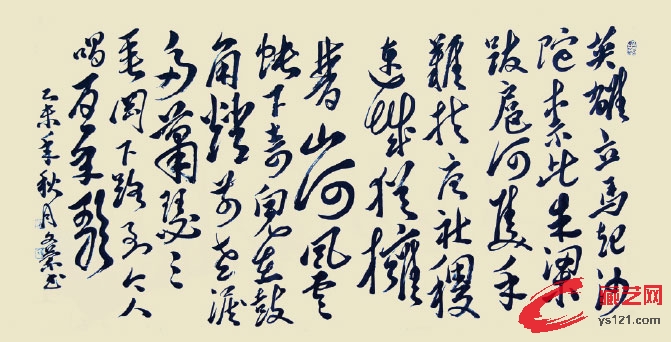 英雄立馬起沙
陀奈此朱梁
跋扈何隻手
難扶唐社稷
連城猶擁
晉山河風雲
帳下奇兒在鼓
角燈前老淚
多蕭瑟三
垂岡下路至今人
唱百年歌
乙未年秋月
藏艺网
ys121.com